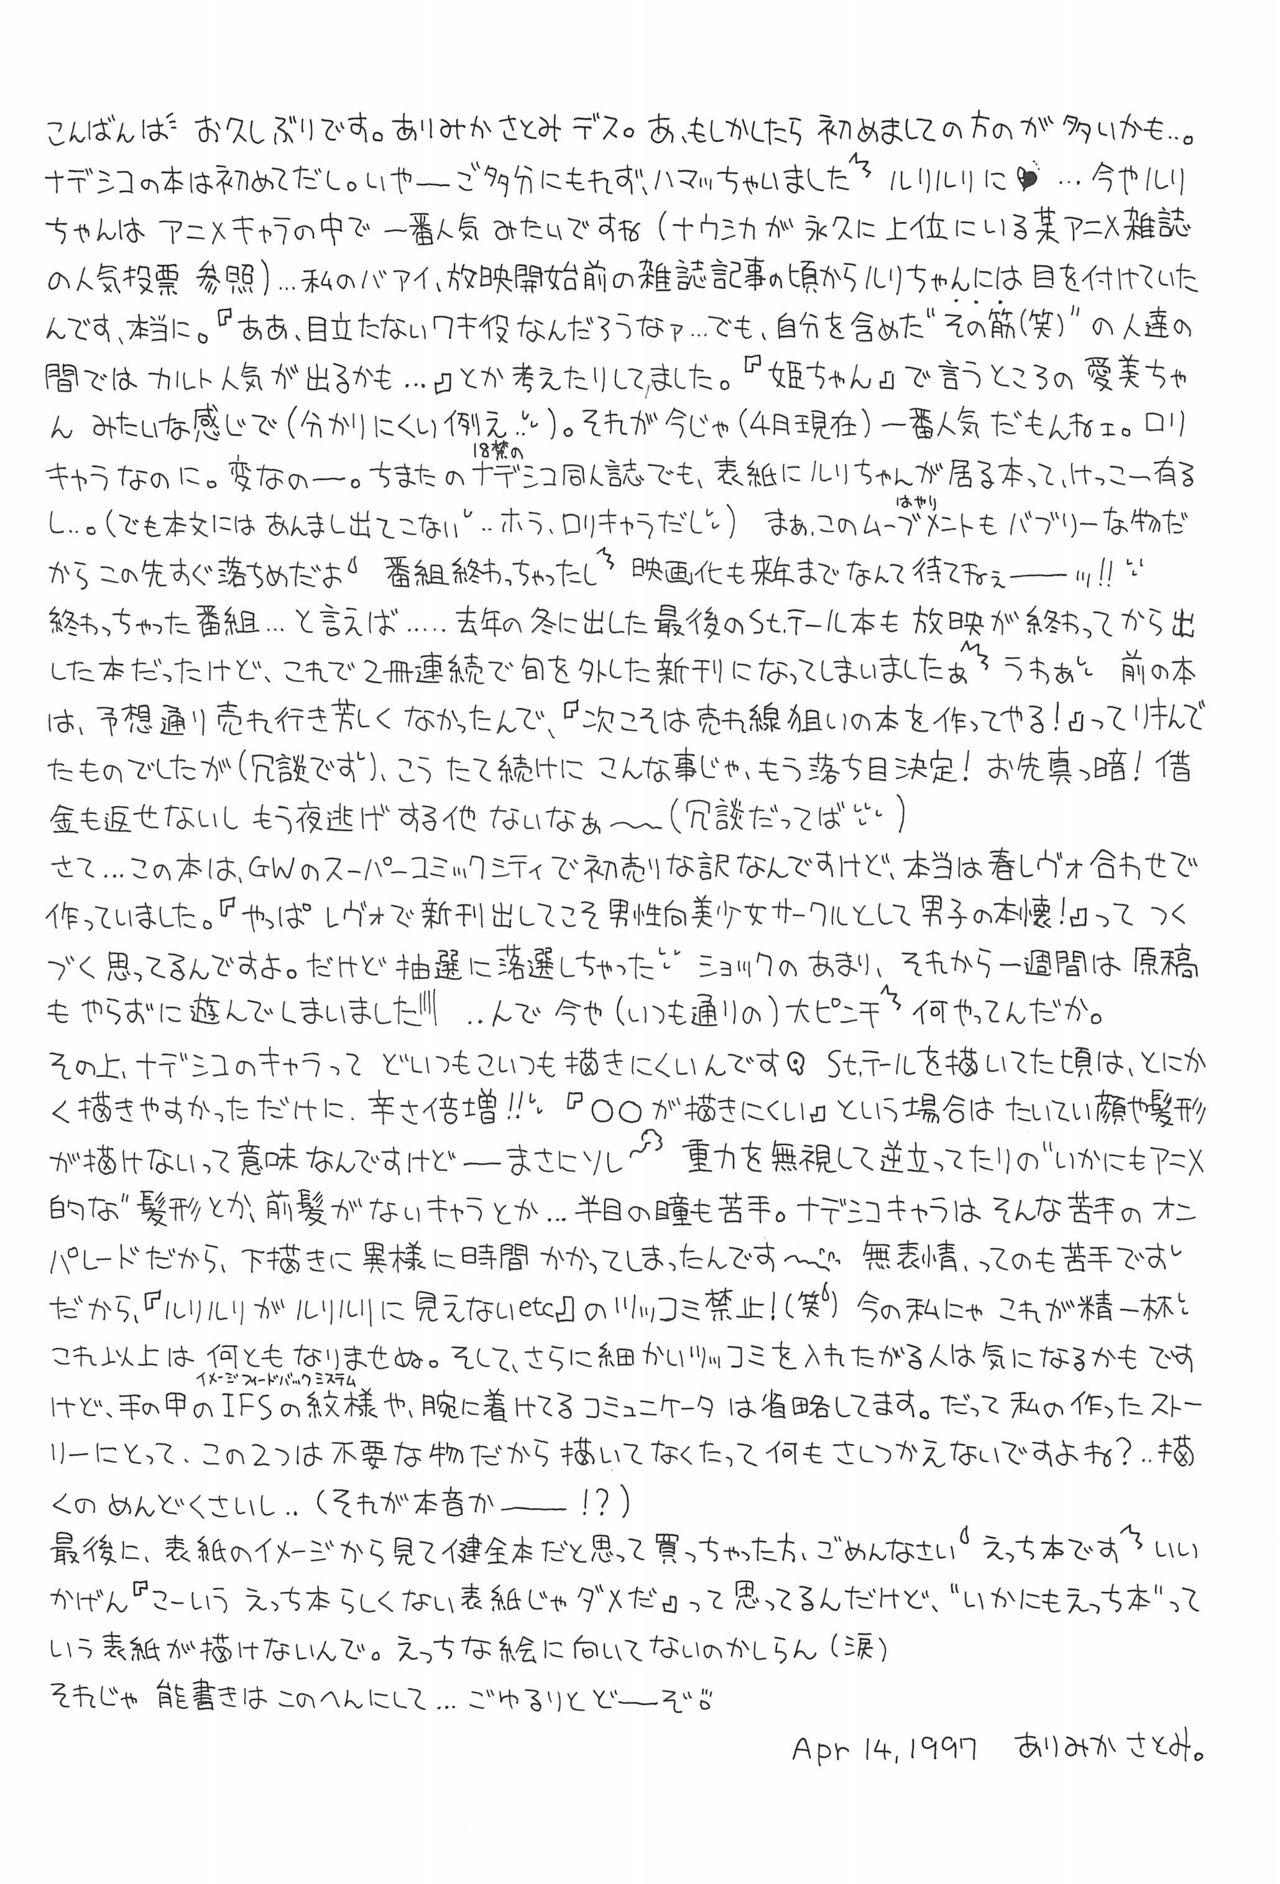 こんばんは お久しぶりです。ありみかさとみデス。あ、もしかしたら 初めましての方のが多いかも‥。
ナデシコの本は初めてだし。いやーーご多分にもれず、ハマッちゃいました ルリルリに♥ …今やルリ
ちゃんは アニメキャラの中で 一番人気 みたいですね（ナウシカが 永久に上位にいる某アニメ雑誌
の人気投票 参照）…私のバアイ、放映開始前の雑誌記事の頃からルリちゃんには目を付けていた
んです、本当に。『ああ、目立たないワキ役なんだろうなァ…でも、自分を含めた“その筋(笑)”の人達の
間では カルト人気が出るかも…』とか考えたりしてました。『姫ちゃん』で言うところの 愛美ちゃ
ん みたいな感じで（分かりにくい例え‥）。それが今じゃ（4月現在）一番人気だもんねェ。ロリ
キャラなのに。変なのー。ちまたの18禁のナデシコ同人誌でも、表紙にルリちゃんが居る本って、けっこー有る
し‥。（でも本文にはあんまし出てこない‥ホラ、ロリキャラだし） まぁ、このムーブメント(はやり)もバブリーな物だ
からこの先すぐ落ちめだよ 番組終わっちゃったし 映画化も来年までなんて待てねぇーーッ!!
終わっちゃった番組…と言えば……去年の冬に出した最後のSt.テール本も 放映が終わってから出
した本だったけど、これで2冊連続で旬を外した新刊になってしまいましたぁ うわぁ 前の本
は、予想通り売れ行き芳しくなかったんで、『次こそは売れ線狙いの本を作ってやる！』ってリキんで
たものでしたが（冗談です）、こう たて続けに こんな事じゃ、もう落ち目決定！お先真っ暗！借
金も返せないし もう夜逃げする他 ないなぁ〜〜（冗談だってば）
さて…この本は、GWのスーパーコミックシティで初売りな訳なんですけど、本当は春レヴォ合わせで
作っていました。『やっぱレヴォで新刊出してこそ男性向美少女サークルとして男子の本懐！』って つく
づく思ってるんですよ。だけど抽選に落選しちゃった ショックのあまり、それから一週間は原稿
もやらずに遊んでしまいました ‥んで 今や（いつも通りの）大ピンチ 何やってんだか。
その上、ナデシコのキャラって どいつもこいつも描きにくいんです St.テールを描いてた頃は、とにか
く描きやすかっただけに、辛さ倍増!! 『○○が描きにくい』という場合は たいてい顔や髪形
が描けないって意味なんですけどーーまさにソレ 重力を無視して逆立ってたりの“いかにもアニメ
的な”髪形とか、前髪がないキャラとか…半目の瞳も苦手。ナデシコキャラは そんな苦手のオン
パレードだから、下描きに異様に時間かかってしまったんです〜 無表情、ってのも苦手です
だから、『ルリルリがルリルリに見えないetc』のツッコミ禁止！(笑) 今の私にゃ これが精一杯
これ以上は 何ともなりませぬ。そして、さらに細かいツッコミを入れたがる人は気になるかもです
けど、手の甲のIFS(イメージフィードバックシステム)の紋様や、腕に着けてるコミュニケータは省略してます。だって私の作ったストー
リーにとって、この2つは不要な物だから描いてなくたって何もさしつかえないですよね？‥描
くのめんどくさいし‥（それが本音かーー!?）
最後に、表紙のイメージから見て健全本だと思って買っちゃった方、ごめんなさい えっち本です いい
かげん『こーいう えっち本らしくない表紙じゃダメだ』って思ってるんだけど、“いかにもえっち本”って
いう表紙が描けないんで。えっちな絵に向いてないのかしらん（涙）
それじゃ 能書きはこのへんにして…ごゆるりとどーーぞ
Apr 14,1997 ありみかさとみ。